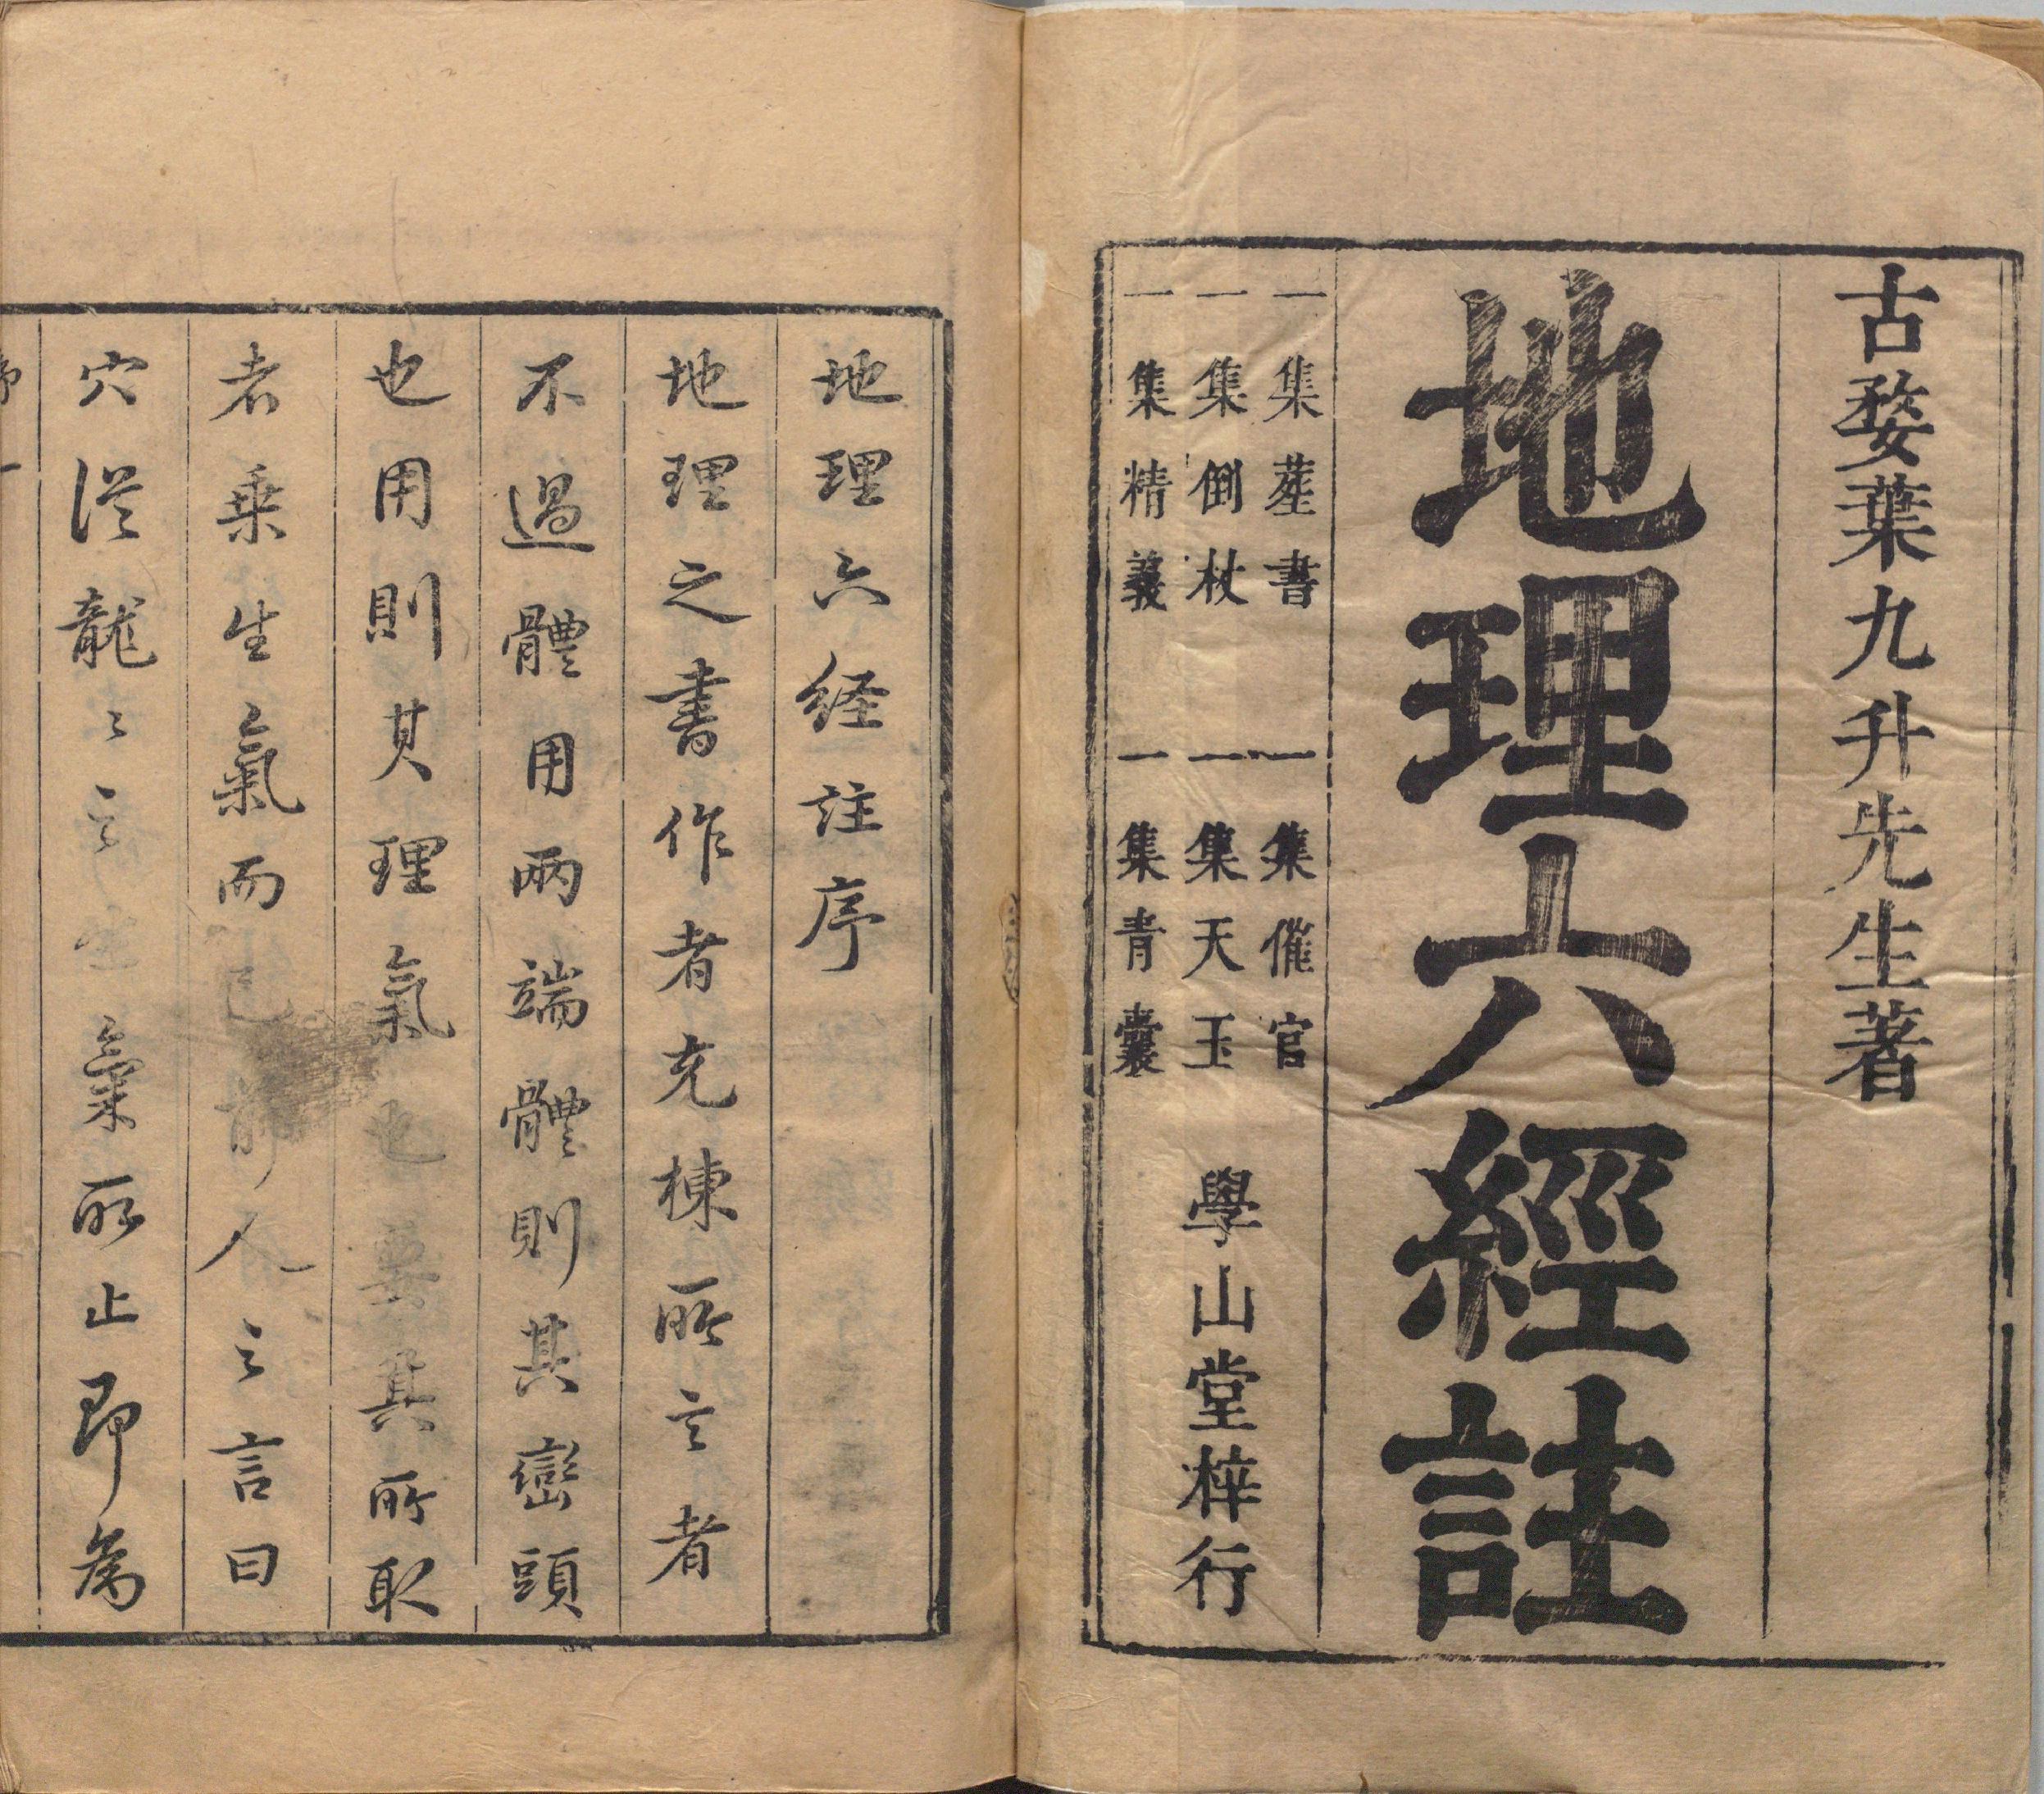 古婺葉九升先生著
地理六經註
一集葬書 一集催官
一集倒杖 一集天玉
一集精義 一集青囊
學山堂梓行
地理六经註序
地理之書作者充棟所言者
不過體用兩端體則其巒頭
也用則其理氣也要其所取
者乗生氣而已前人之言曰
穴從龍之言生氣所止即為